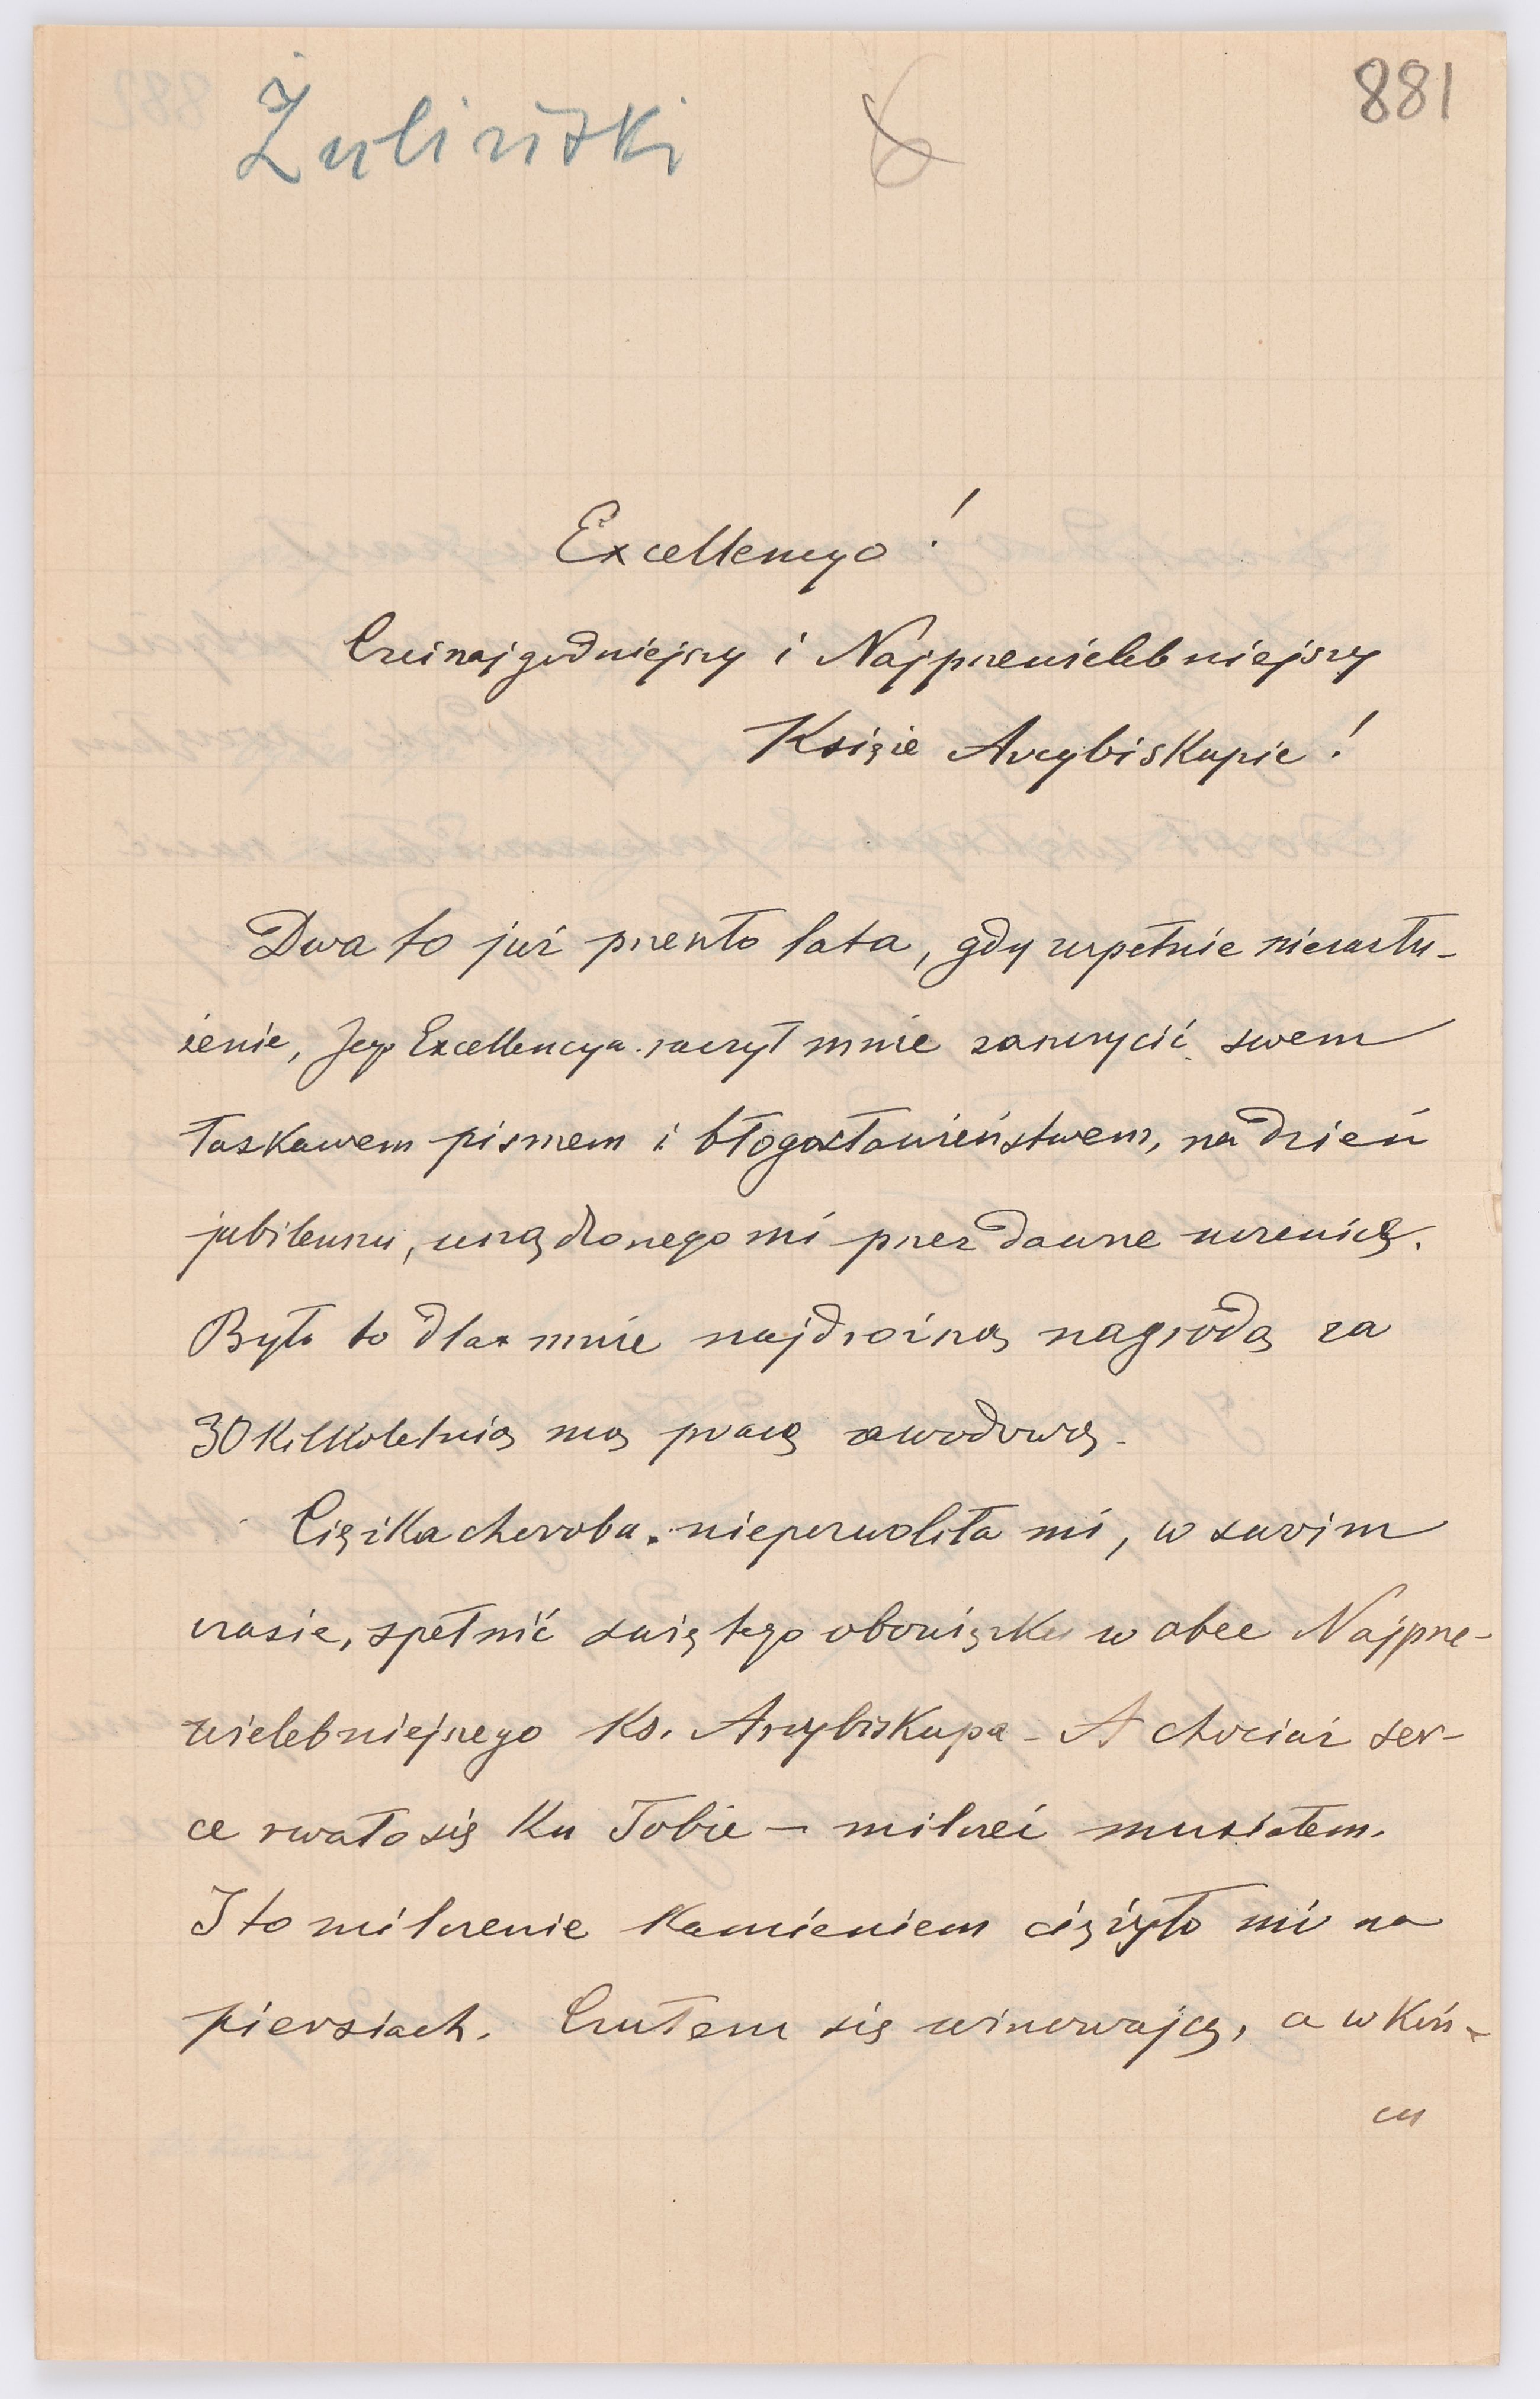 Żuliński
881
Excellencyo!
Czcinajgodniejszy i Najprzewielebniejszy
Księże Arcybiskupie!
Dwa to już przeszło lata, gdy zupełnie niezasłu-
żenie, Jego Excellencya raczył mnie zaszczycić swem
łaskawem pismem i błogosławieństwem, na dzień
jubileuszu, urządzonego mi przez dawne uczenicę.
Było to dla mnie najdroższą nagrodą za
30 kilkoletnią mą pracę zawodową.
Ciężka choroba niepozwoliła mi, w swoim
czasie, spełnić świętego obowiązku w obec Najprze-
wielebniejszego Ks. Arcybiskupa - A chociaż ser-
ce rwało się ku Tobie — milczeć musiałem.
I to milczenie kamieniem ciężyło mi na
piersiach. Czułem się winowajcą, a w koń-
cu